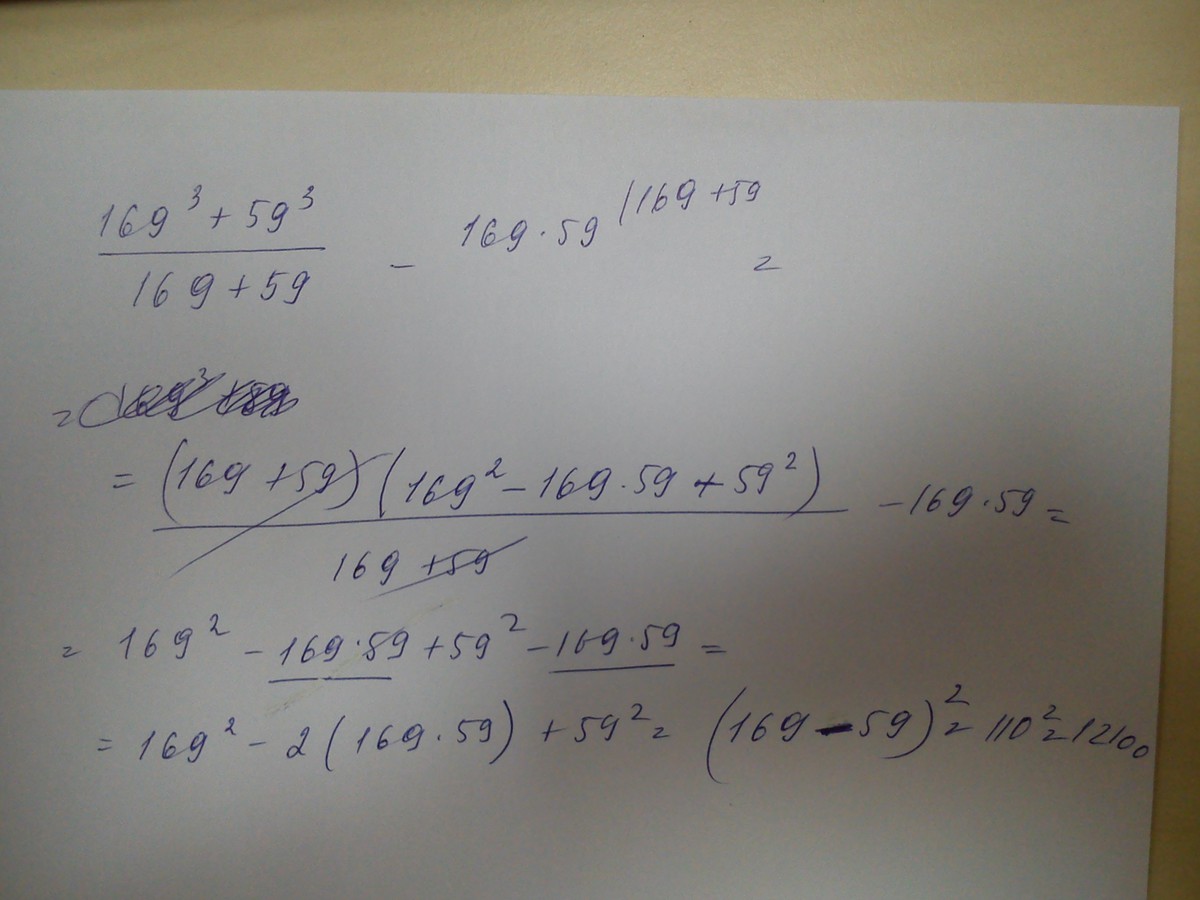 169³ + 59³ / 169 + 59 - 169 · 59 /169 + 59 =
=
= (169 + 59) (169² - 169 · 59 + 59²) / 169 + 59 - 169 · 59 =
= 169² - 169 · 59 + 59² - 169 · 59 =
= 169² - 2 (169 · 59) + 59² = (169 - 59)² = 110² = 12100